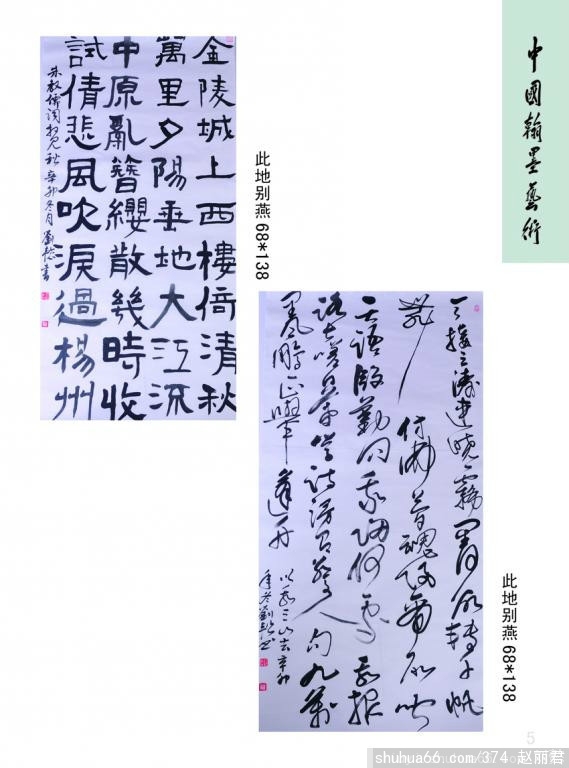 中國翰墨藝術
金陵城上西樓倚清秋
萬里夕陽垂地大江流
中原亂簪纓散幾時收
試倩悲風吹淚過楊州
朱敦儒詞相見 辛卯冬月 劉 書
此地别燕 68*138
天接雲濤連曉霧星河欲轉千帆
舞彷彿夢魂歸帝所聞
天語殷勤問我歸何處我報
路長嗟日暮學詩謾有驚人句九萬
里風鵬正舉 蓬舟
吹取三山去 辛卯
年冬劉
此地别燕 68*138
5
shuhua66.com/374 赵丽君